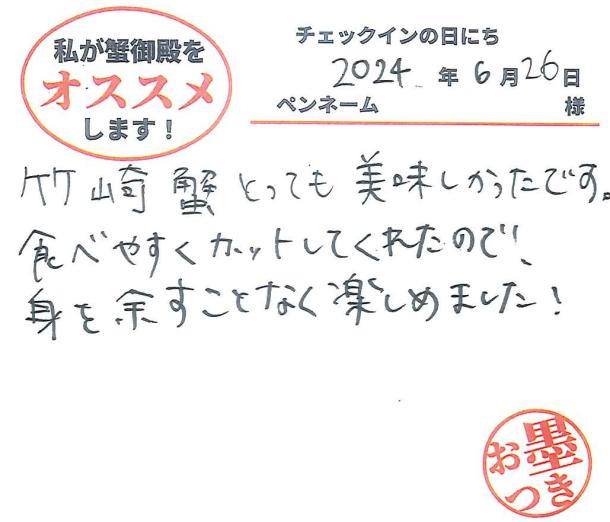 私が蟹御殿を
オススメ
します！
チェックインの日にち
2024年6月26日
ペンネーム 様
竹崎蟹とっても美味しかったです。
食べやすくカットしてくれたので、
身を余すことなく楽しめました！
お墨
つき